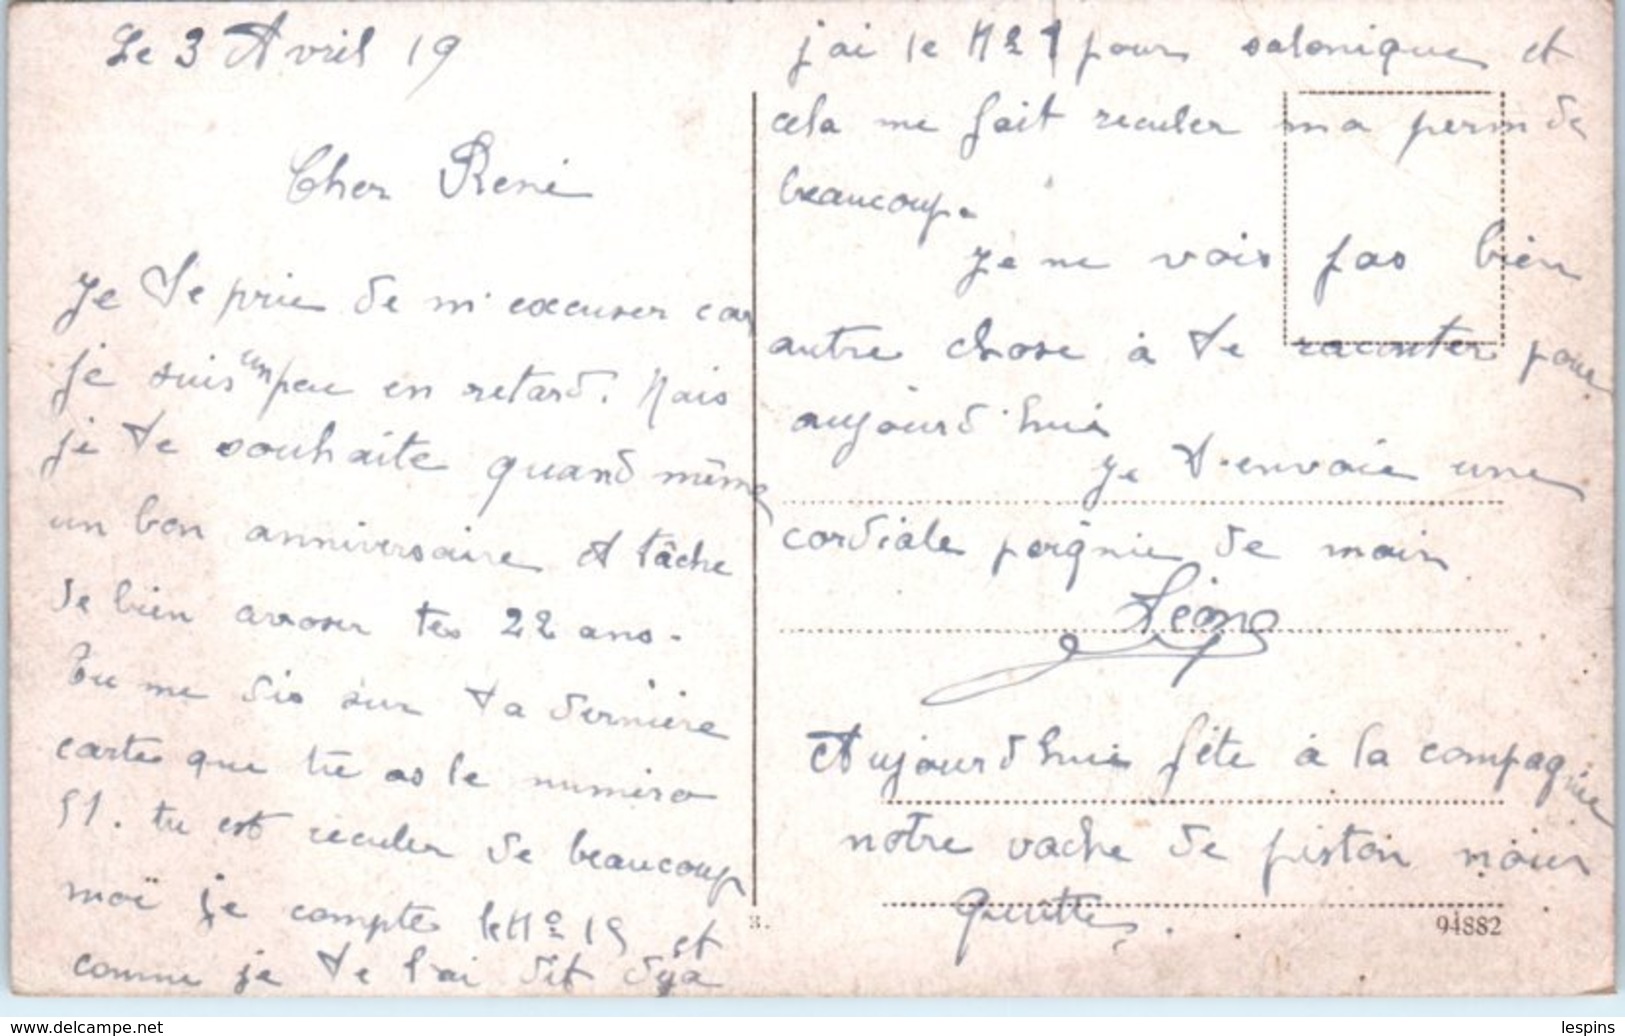 Le 3 Avril 19
Cher René
Je te prie de m'excuser car
je suis un peu en retard. Mais
je te souhaite quand même
un bon anniversaire et tâche
de bien arroser tes 22 ans.
Tu me dis sur ta dernière
carte que tu as le numéro
51. tu est reculer de beaucoup
moï je compte le No 19 et
comme je te l'ai dit déja
j'ai le No 21 pour salonique et
cela me fait reculer ma perm de
beaucoup.
Je ne vois pas bien
autre chose à te raconter pour
aujourd'hui
Je t'envoie une
cordiale poignie de main
Aujourd'hui fête à la compagnie
notre vache de piston nous
quitte.
3.
94882
delcampe.net
lespins